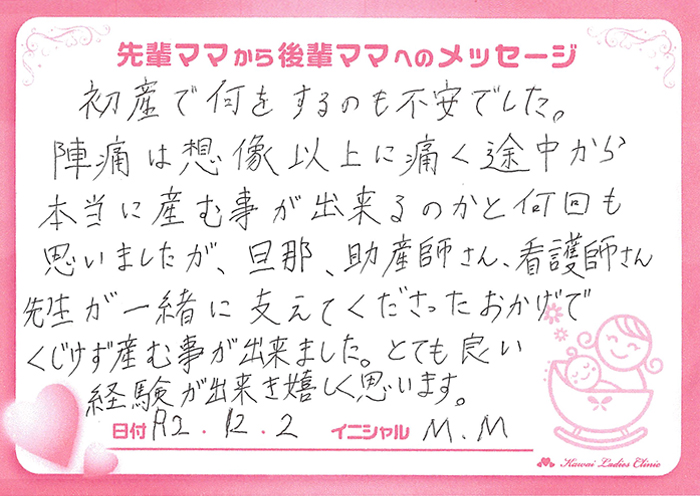 先輩ママから後輩ママへのメッセージ
初産で何をするのも不安でした。
陣痛は想像以上に痛く途中から
本当に産む事が出来るのかと何回も
思いましたが、旦那、助産師さん、看護師さん
先生が一緒に支えてくださったおかげで
くじけず産む事が出来ました。とても良い
経験が出来き嬉しく思います。
日付 R2.12.2 イニシャル M.M
Kawai Ladies Clinic